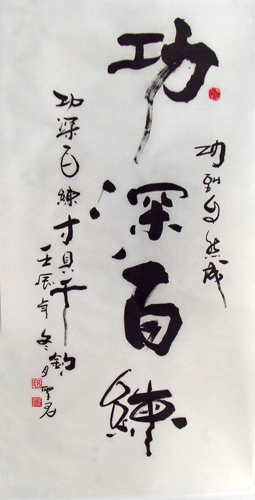 功到自然成
功深百練
功深百練才具千鈞
壬辰年冬月